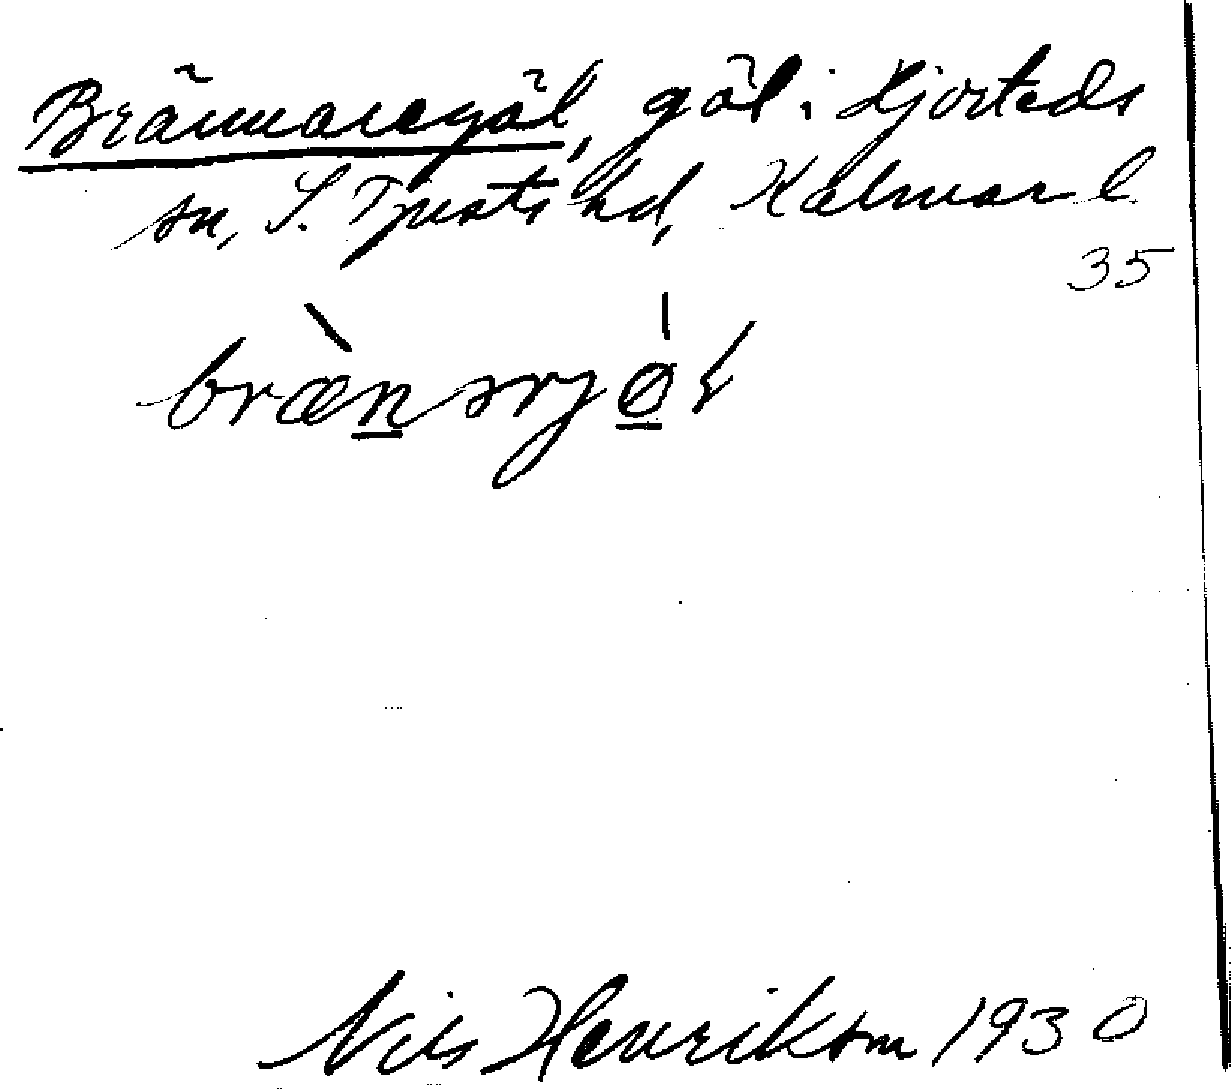 Brännaregöl, göl i Hjorteds
sn, S. Tjusts hd, Kalmar l.
35
bræ̀n̲ərjǿ̲ɫ
Nils Henrikson 1930